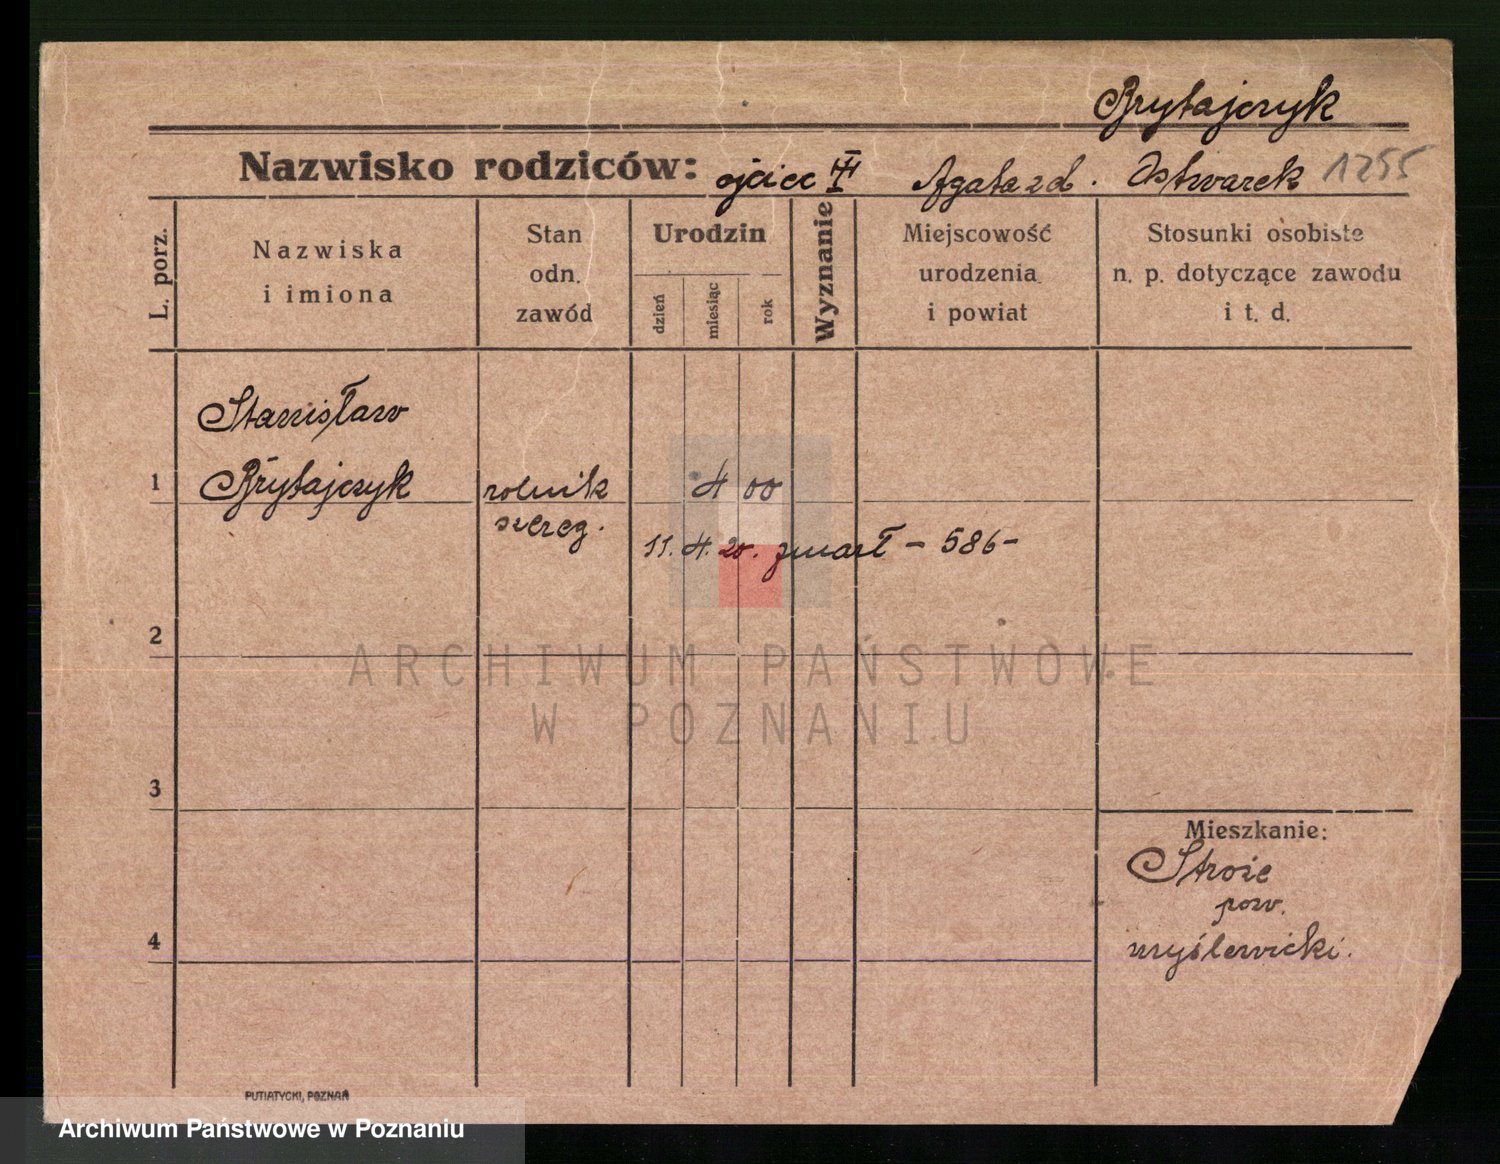 Brytajczyk
Nazwisko rodziców: ojciec Agata zd. Ostwarek 1255
L. porz.
Nazwiska
i imiona
Stan
odn.
zawód
Urodzin
dzień
miesiąc
rok
Wyznanie
Miejscowość
urodzenia
i powiat
Stosunki osobiste
n. p. dotyczące zawodu
i t. d.
Stanisław
1 Brytajczyk rolnik 4 00
szereg.
11. 4. 20. zmarł - 586-
2
ARCHIWUM PAŃSTWOWE
W POZNANIU
3
Mieszkanie:
Stroże
pow.
myślewicki.
4
PUTIATYCKI, POZNAŃ
Archiwum Państwowe w Poznaniu